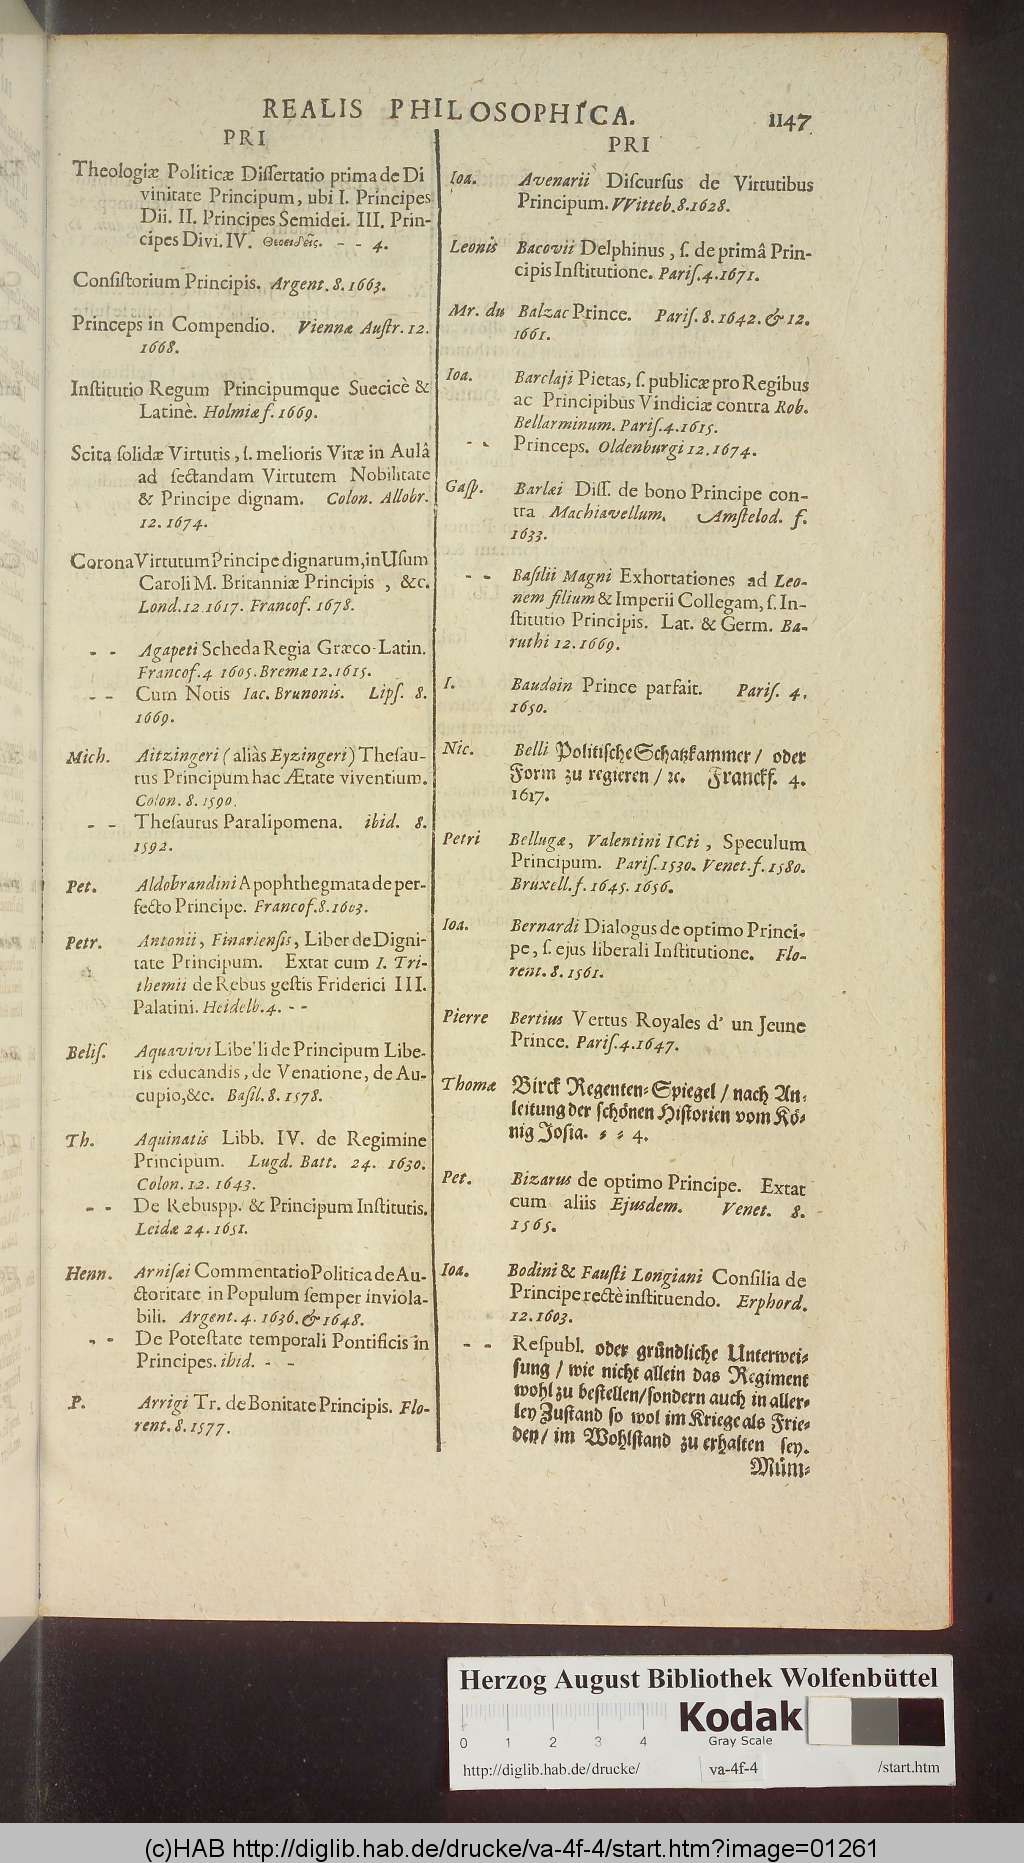 REALIS PHILOSOPHICA.
1147
PRI
Theologiæ Politicæ Dissertatio prima de Di
vinitate Principum, ubi I. Principes
Dii. II. Principes Semidei. III. Prin-
cipes Divi. IV. - - 4.
Consistorium Principis. Argent. 8. 1663.
Princeps in Compendio. Viennæ Austr. 12.
1668.
Institutio Regum Principumque Suecicè &
Latinè. Holmiæ f. 1669.
Scita solidæ Virtutis, s. melioris Vitæ in Aulâ
ad sectandam Virtutem Nobilitate
& Principe dignam. Colon. Allobr.
12. 1674.
Corona Virtutum Principe dignarum, in Usum
Caroli M. Britanniæ Principis, &c.
Lond. 12 1617. Francof. 1678.
- - Agapeti Scheda Regia Græco-Latin.
Francof. 4 1605. Bremæ 12. 1615.
- - Cum Notis Iac. Brunonis. Lips. 8.
1669.
Mich. Aitzingeri (aliàs Eyzingeri) Thesau-
rus Principum hac Ætate viventium.
Colon. 8. 1590.
- - Thesaurus Paralipomena. ibid. 8.
1592.
Pet. Aldobrandini Apophthegmata de per-
fecto Principe. Francof. 8. 1603.
Petr. Antonii, Finariensis, Liber de Digni-
tate Principum. Extat cum I. Tri-
themii de Rebus gestis Friderici III.
Palatini. Heidelb. 4. - -
Belis. Aquavivi Libelli de Principum Libe-
ris educandis, de Venatione, de Au-
cupio, &c. Basil. 8. 1578.
Th. Aquinatis Libb. IV. de Regimine
Principum. Lugd. Batt. 24. 1630.
Colon. 12. 1643.
- - De Rebuspp. & Principum Institutis.
Leidæ 24. 1651.
Henn. Arnisæi Commentatio Politica de Au-
ctoritate in Populum semper inviola-
bili. Argent. 4. 1636. & 1648.
- - De Potestate temporali Pontificis in
Principes. ibid. - -
P. Arrigi Tr. de Bonitate Principis. Flo-
rent. 8. 1577.
PRI
Ioa. Avenarii Discursus de Virtutibus
Principum. VVitteb. 8. 1628.
Leonis Bacovii Delphinus, s. de primâ Prin-
cipis Institutione. Paris. 4. 1671.
Mr. du Balzac Prince. Paris. 8. 1642. & 12.
1661.
Ioa. Barclaji Pietas, s. publicæ pro Regibus
ac Principibus Vindiciæ contra Rob.
Bellarminum. Paris. 4. 1615.
- - Princeps. Oldenburgi 12. 1674.
Gasp. Barlæi Diss. de bono Principe con-
tra Machiavellum. Amstelod. f.
1633.
- - Basilii Magni Exhortationes ad Leo-
nem filium & Imperii Collegam, s. In-
stitutio Principis. Lat. & Germ. Ba-
ruthi 12. 1669.
I. Baudoin Prince parfait. Paris. 4.
1650.
Nic. Belli Politische Schatzkammer / oder
Form zu regieren / ꝛc. Franckf. 4.
1617.
Petri Bellugæ, Valentini ICti, Speculum
Principum. Paris. 1530. Venet. f. 1580.
Bruxell. f. 1645. 1656.
Ioa. Bernardi Dialogus de optimo Princi-
pe, s. ejus liberali Institutione. Flo-
rent. 8. 1561.
Pierre Bertius Vertus Royales d' un Jeune
Prince. Paris. 4. 1647.
Thomæ Birck Regenten-Spiegel / nach An-
leitung der schönen Historien vom Kö-
nig Josia. - - 4.
Pet. Bizarus de optimo Principe. Extat
cum aliis Ejusdem. Venet. 8.
1565.
Ioa. Bodini & Fausti Longiani Consilia de
Principe rectè instituendo. Erphord.
12. 1603.
- - Respubl. oder gründliche Unterwei-
sung / wie nicht allein das Regiment
wohl zu bestellen / sondern auch in aller-
ley Zustand so wol im Kriege als Frie-
den / im Wohlstand zu erhalten sey.
Müm-
Herzog August Bibliothek Wolfenbüttel
Kodak
Gray Scale
0 1 2 3 4
http://diglib.hab.de/drucke/ va-4f-4 /start.htm
(c)HAB http://diglib.hab.de/drucke/va-4f-4/start.htm?image=01261